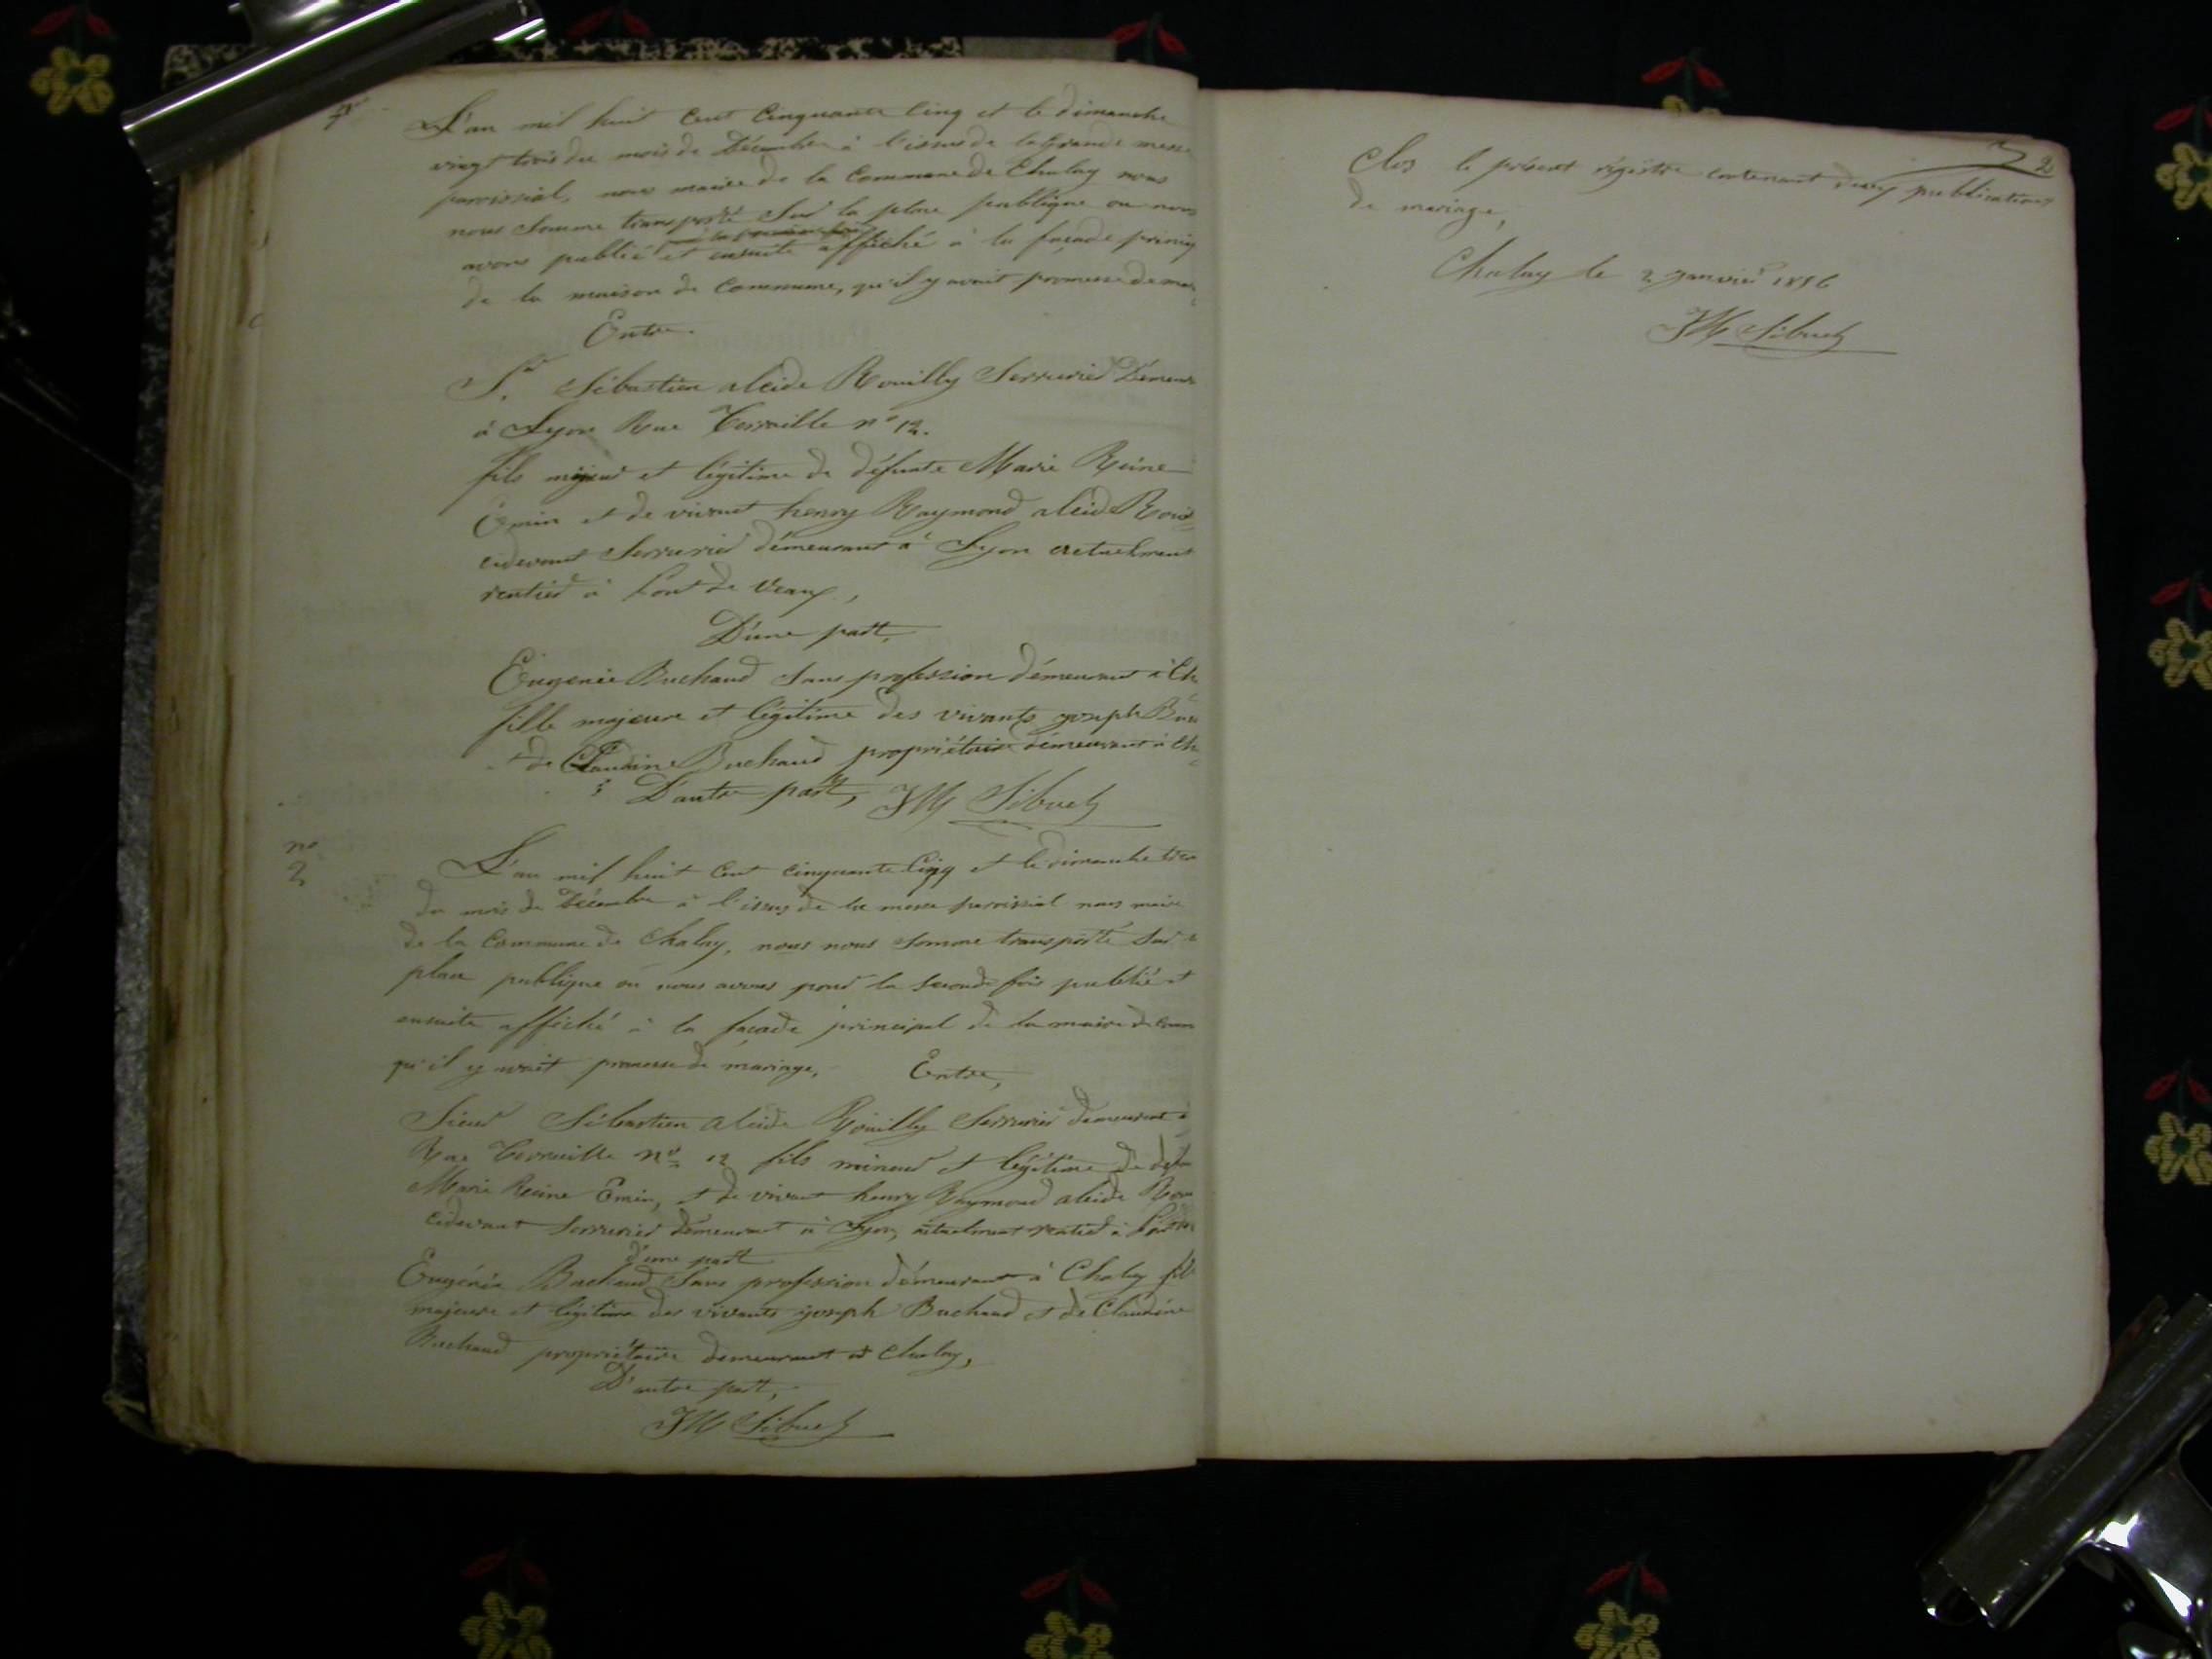 L'an mil huit cent Cinquante Cinq et le dimanche
vingt trois du mois de Décembre à l'issue de la Grande messe
paroissial, nous maire de la Commune de Chaley nous
nous somme transporté Sur la place publique ou nous
avons publié et ensuite affiché à la façade princip
de la maison de Commune, qu'il y avait promesse de mar
Entre
Sr. Sébastien alcide Rouilly Serrurier Demeur
à Lyon Rue Terraille n° 12.
fils mineur et légitime de défunte Marie Reine
Emin et de vivant henry Raymond alcide Roui
cidevant Serrurier démeurant à Lyon actuelment
rentier à Pont de Vaux,
D'une part,
Eugenie Buchaud Sans profession démeurant à Ch
fille majeure et légitime des vivants joseph Buc
et de Claudine Buchaud propriétaire démeurant à Ch
D'autre part, JM Sibuet
no
2
L'an mil huit Cent cinquante Cinq et le dimanche tren
du mois de Décembre à l'issus de la messe paroissial nous maire
de la Commune de Chaley, nous nous somme transporté Sur
place publique ou nous avons pour la seconde fois publié et
ensuite affiché à la facade principal de la maire de com
qu'il y avait promesse de mariage, Entre,
Sieur Sébastien alcide Rouilly Serrurier demeurant à
Rue Terraille no 12 fils mineur et légitime de defu
Marie Reine Emin, et de vivant henry Raymond alcide Rou
cidevant Serrurier démeurant à Lyon, actuelment rentier à Pont de
d'une part
Eugénie Buchaud Sans profession démeurant à Chaley fill
majeure et légitime des vivants joseph Buchaud et de Claudine
Buchaud propriétaire demeurant à Chaley,
D'autre part,
JM Sibuet
2
Clos le présent régistre contenant deux publications
de mariage,
Chaley le 2 janvier 1856
JM Sibuet